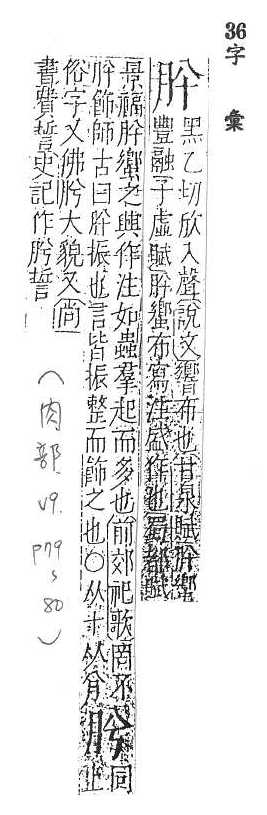 36字 彙
肸 黑乙切欣入聲說文響布也甘泉賦肸蠁
豐融子虛賦肸蠁布寫注盛作也蜀都賦
景福肸蠁之興作注如蟲羣起而多也前郊祀歌罔不
肸飾師古曰肸振也言皆振整而飾之也○从十从 肹 同上
俗字又佛肹大貌又尚
書費誓史記作肹誓
(肉部 v9. p79~80)